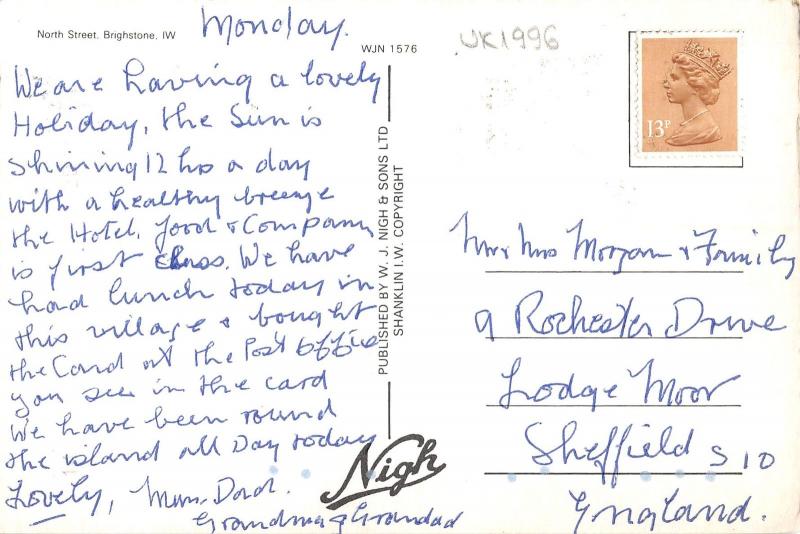 North Street, Brighstone, IW
Monday.
WJN 1576
UK1996
We are having a lovely
Holiday, the Sun is
shining 12 hrs a day
with a healthy breeze
the Hotel, food & Company
is first class. We have
had lunch today in
this village & bought
the Card at the Post Office
you see in the card
We have been round
the island all Day today
Lovely, Mum. Dad.
Grandma & Grandad
PUBLISHED BY W. J. NIGH & SONS LTD
SHANKLIN I.W. COPYRIGHT
Nigh
13P
Mr & Mrs Morgan & Family
9 Rochester Drive
Lodge Moor
Sheffield S10
England.